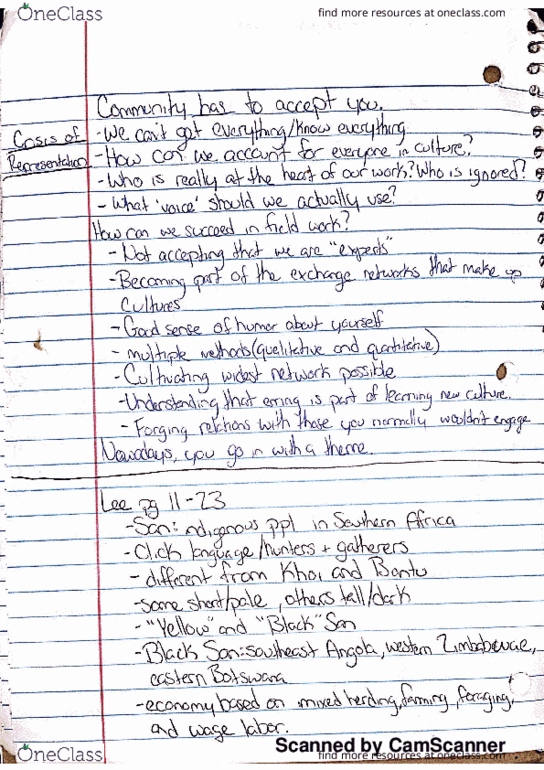 OneClass
find more resources at oneclass.com
Community has to accept you.
Casis of
Representation
-We can't get everything/know everything
-How can we account for everyone in culture?
-Who is really at the heart of our work? Who is ignored?
-What 'voice' should we actually use?
How can we succeed in field work?
-Not accepting that we are "experts"
-Becoming part of the exchange networks that make up
cultures
-Good sense of humor about yourself
-multiple methods(qualitative and quantitative)
-Cultivating widest network possible
-Understanding that erring is part of learning new culture.
-Forging relations with those you normally wouldn't engage
Nowadays, you go in with a theme.
Lee pg 11-23
-San: indigenous ppl in Southern Africa
-Click language/hunters + gatherers
-different from Khoi and Bantu
-some short/pale, others tall/dark
-"Yellow" and "Black" San
-Black San: southeast Angola, western Zimbabwae,
eastern Botswana
-economy based on mixed herding, farming, foraging,
and wage labor.
Scanned by CamScanner
OneClass
find more resources at oneclass.com